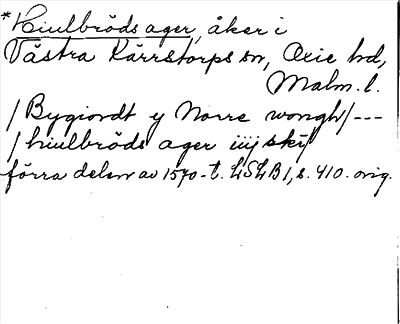 *Hiulbröds ager, åker i
Västra Kärrstorps sn, Oxie hd,
Malm. l.
/Bygiordt y Norre wongh/---
/hiulbröds ager iiij ski/
förra delen av 1570-t. LSLB 1, s. 410. orig.